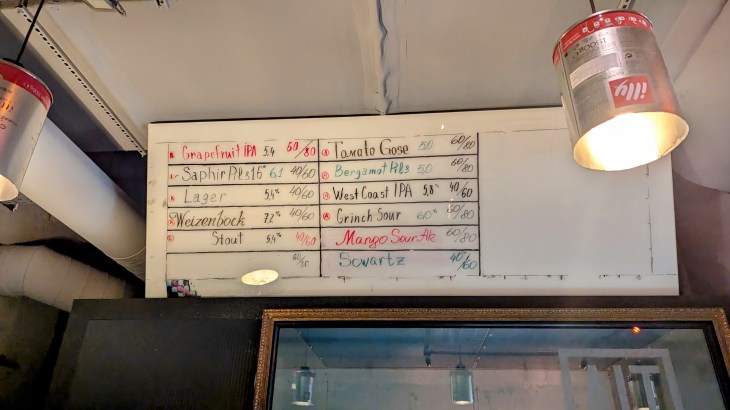 Grapefruit IPA 5,4 60/80
Saphir Pils 15° 6.1 40/60
Lager 5,4% 40/60
Weizenbock 7.2% 40/60
Stout 5,4% 40/60
60/80
Tomato Gose 5.0 60/80
Bergamot Pils 5.0 60/80
West Coast IPA 5,8% 40/60
Grinch Sour 6.0% 60/80
Mango Sour Ale 60/80
Scwartz 40/60
illy